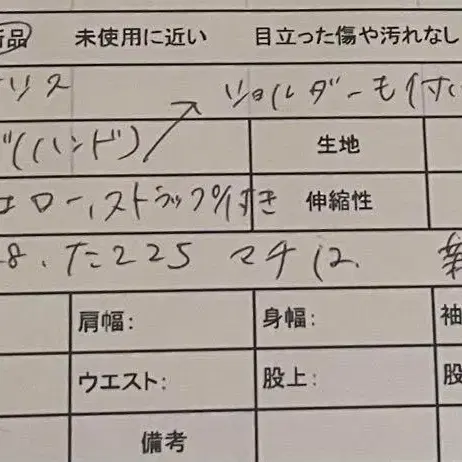 新品 未使用に近い 目立った傷や汚れなし
ショルダーも付
(ハンド) 生地
エロー、ストラップ付き 伸縮性
8. た225 マチ12.
肩幅: 身幅: 袖
ウエスト: 股上: 股
備考